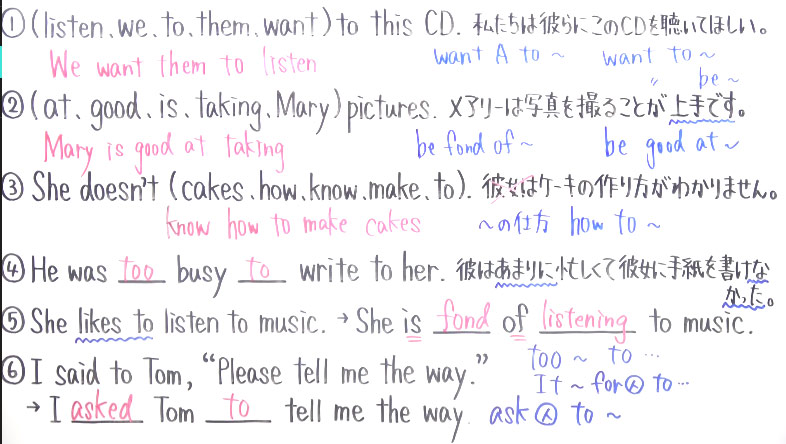 ①(listen、we、to、them、want) to this CD. 私たちは彼らにこのCDを聴いてほしい。
We want them to listen want A to ~ want to ~
〃 be ~
②(at、good、is、taking、Mary) pictures. メアリーは写真を撮ることが上手です。
Mary is good at taking be fond of ~ be good at ~
③ She doesn't (cakes、how、know、make、to). 彼女はケーキの作り方がわかりません。
know how to make cakes ~の仕方 how to ~
④ He was too busy to write to her. 彼はあまりに忙しくて彼女に手紙を書けな
かった。
⑤ She likes to listen to music. → She is fond of listening to music.
⑥ I said to Tom, “Please tell me the way.” too ~ to …
It ~ for Ⓐ to …
→ I asked Tom to tell me the way. ask Ⓐ to ~